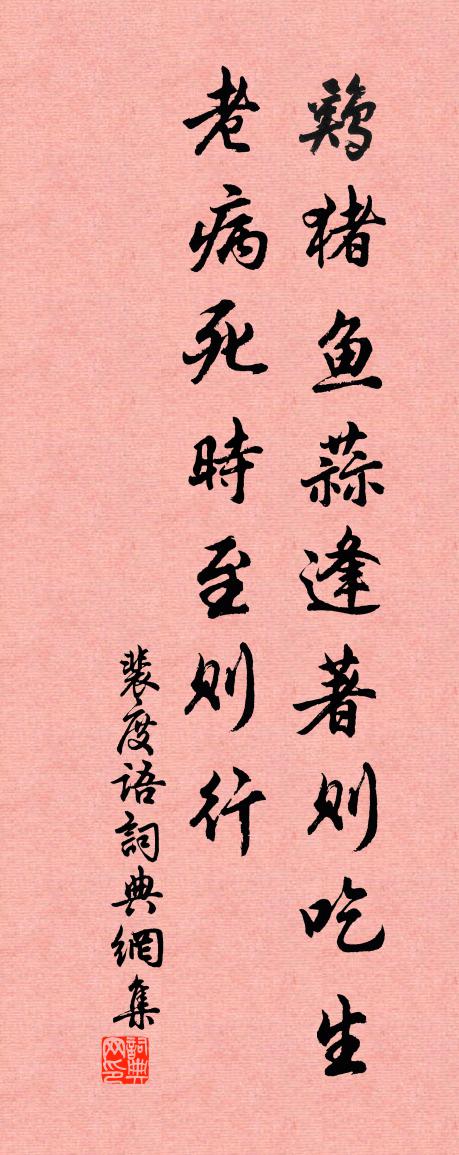 鷄猪鱼蒜逢著则吃生
老病死時至则行
裴度语詞典網集
詞典网印